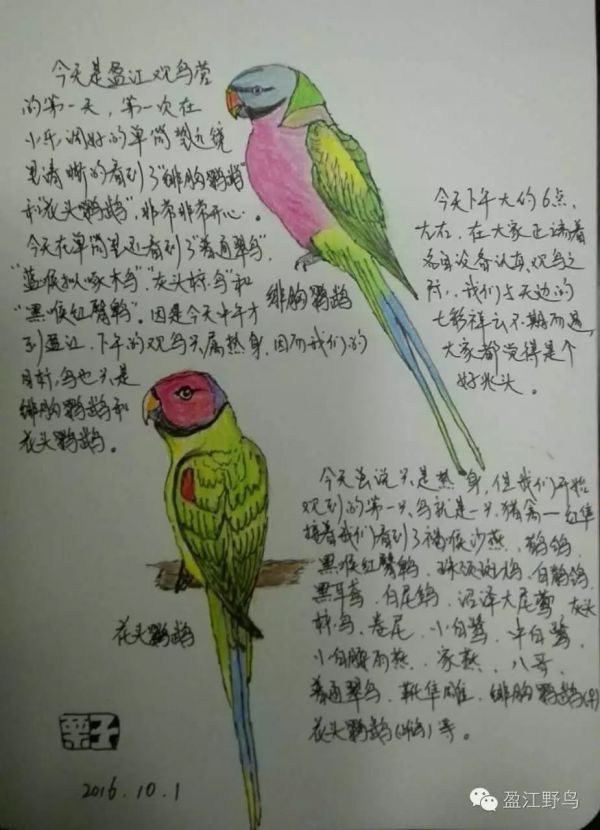 今天是盈江观鸟营
的第一天，第一次在
小乐调好的单筒望远镜
里清晰的看到了"绯胸鹦鹉"
和"花头鹦鹉"，非常非常开心。
今天在单筒里还看到了"普通翠鸟"
"蓝喉拟啄木鸟""灰头椋鸟"和
"黑喉红臀鹎"。因是今天中午才
到盈江，下午的观鸟只属热身，因而我们的
目标鸟也只是
绯胸鹦鹉和
花头鹦鹉。
绯胸鹦鹉
今天下午大约6点
左右，在大家正端着
各自设备认真观鸟之
际，我们与天边的
七彩祥云不期而遇，
大家都觉得是个
好兆头。
花头鹦鹉
今天虽说只是热身，但我们开始
观到的第一只鸟就是一只猛禽——红隼
接着我们看到了褐喉沙燕、鹊鸲、
黑喉红臀鹎、珠颈斑鸠、白鹡鸰、
黑耳鸢、白尾鹞、沼泽大尾莺、灰头
椋鸟、卷尾、小白鹭、中白鹭、
小白腰雨燕、家燕、八哥、
普通翠鸟、靴隼雕、绯胸鹦鹉
花头鹦鹉(雌)等。
栗子
2016.10.1
盈江野鸟